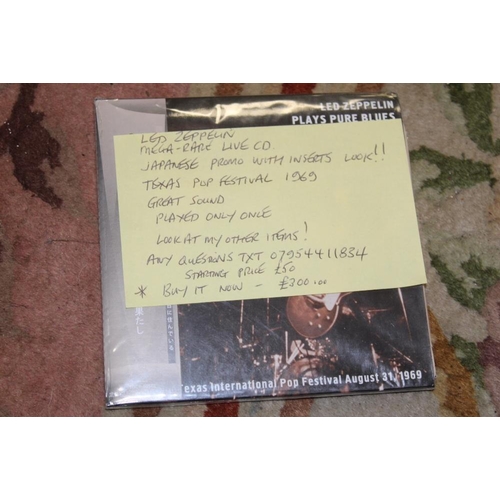 LED ZEPPELIN
PLAYS PURE BLUES
LED ZEPPELIN
MEGA-RARE LIVE CD
JAPANESE PROMO WITH INSERTS LOOK!!
TEXAS POP FESTIVAL 1969
GREAT SOUND
PLAYED ONLY ONCE
LOOK AT MY OTHER ITEMS!
ANY QUESTIONS TXT 07954411834
STARTING PRICE £50
* BUY IT NOW - £200.00
Texas International Pop Festival August 31, 1969